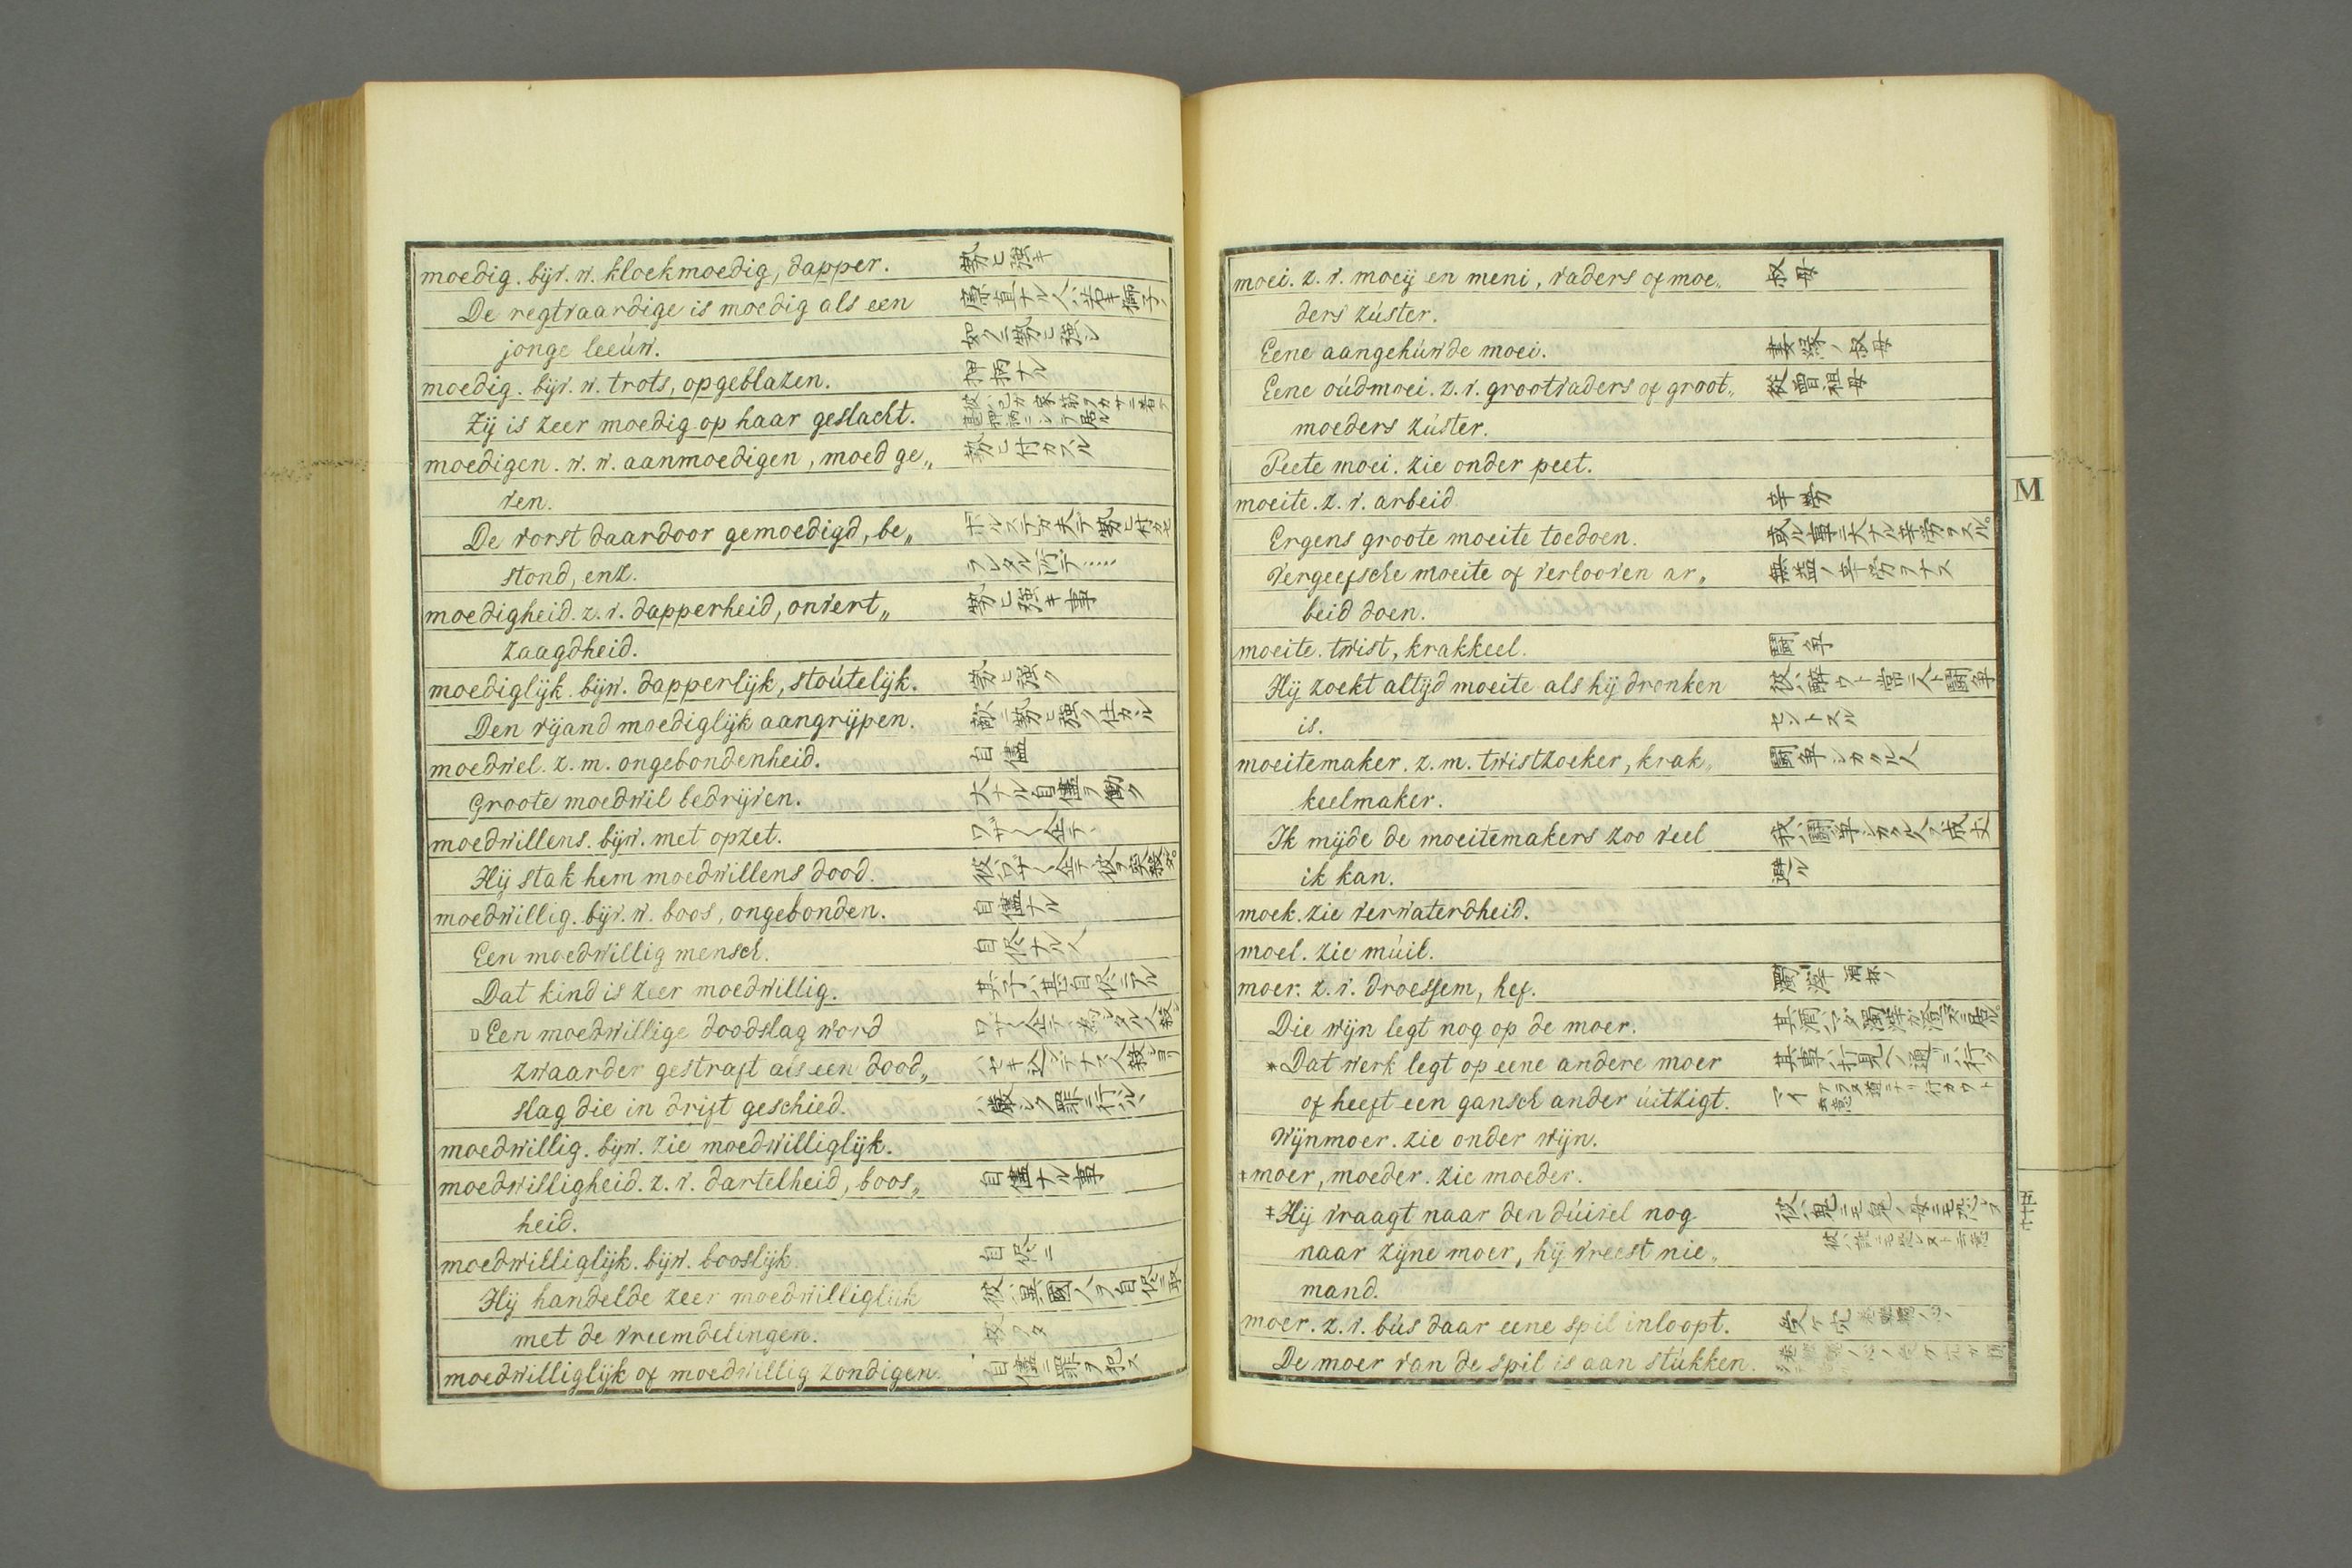 moedig. bijv. w. kloekmoedig, dapper. 勢ヒ強キ
De regtvaardige is moedig als een 廉直ナル人ハ若キ獅子ノ
jonge leeúw. 如クニ勢ヒ強シ
moedig. bijv. w. trots, opgeblazen. 押柄ナル
Zij is zeer moedig op haar geslacht.
moedigen. w. w. aanmoedigen, moed ge„ 勢ヒ付カスル
ven.
De vorst daardoor gemoedigd, be„
stond, enz.
moedigheid. z. v. dapperheid, onvert„ 勢ヒ強キ事
zaagdheid.
moediglijk. bijw. dapperlijk, stoútelijk. 勢ヒ強ク
Den vijand moediglijk aangrijpen. 敵ニ勢ヒ強ク仕カル
moedwel. z. m. ongebondenheid. 自儘
Groote moedwil bedrijven. 大ナル自儘ヲ働ク
moedwillens. bijw. met opzet. ワザ〱企テ
Hij stak hem moedwillens dood. 彼ハワザ〱企テ彼ヲ突殺タ。
moedwillig. bijv. w. boos, ongebonden. 自儘ナル
Een moedwillig mensch. 自侭ナル人
Dat kind is zeer moedwillig. 其子ハ甚自侭ニアル
Een moedwillige doodslag word
zwaarder gestraft als een dood„
slag die in drift geschied. 厳シク罪ニ行ハル
moedwillig. bijw. zie moedwilliglijk.
moedwilligheid. z. v. dartelheid, boos„ 自儘ナル事
heid.
moedwilliglijk. bijw. booslijk. 自侭ニ
Hij handelde zeer moedwilliglijk 彼ハ異國人ヲ自侭ニ取
met de vreemdelingen. 扱フタ
moedwilliglijk of moedwillig zondigen. 自儘ニ罪ヲ犯ス
moei. z. v. moeij en meni, vaders of moe„ 叔母
ders zúster.
Eene aangehúwde moei. 妻縁ノ叔母
Eene oúdmoei. z. v. grootvaders of groot„ 從曽祖母
moeders zúster.
Peete moei. zie onder peet.
moeite. z. v. arbeid. 辛労
Ergens groote moeite toedoen. 或ル事ニ大ナル辛労ヲスル。
Vergeefsche moeite of verlooven ar„ 無益ノ辛労ヲナス
beid doen.
moeite. twist, krakkeel. 闘争
Hij zoekt altijd moeite als hij dronken 彼ハ醉ウト常ニ人ト闘争
is. セントスル
moeitemaker. z. m. twistzoeker, krak„ 闘争シカクル人
keelmaker.
Ik mijde de moeitemakers zoo veel 我ハ闘争シカクル人ヲ成丈
ik kan. 避ル
moek. zie verwaterdheid.
moel. zie múil.
moer. z. v. droessem, hef. 濁滓 酒杯ノ
Die wijn legt nog op de moer.
*Dat werk legt op eene andere moer
of heeft een gansch ander úitzigt.
Wijnmoer. zie onder wijn.
‡moer, moeder. zie moeder.
‡Hij vraagt naar den dúivel nog
naar zijne moer, hij vreest nie„
mand.
moer. z. v. bús daar eene spil inloopt. 受ケ穴
De moer van de spil is aan stúkken.
M